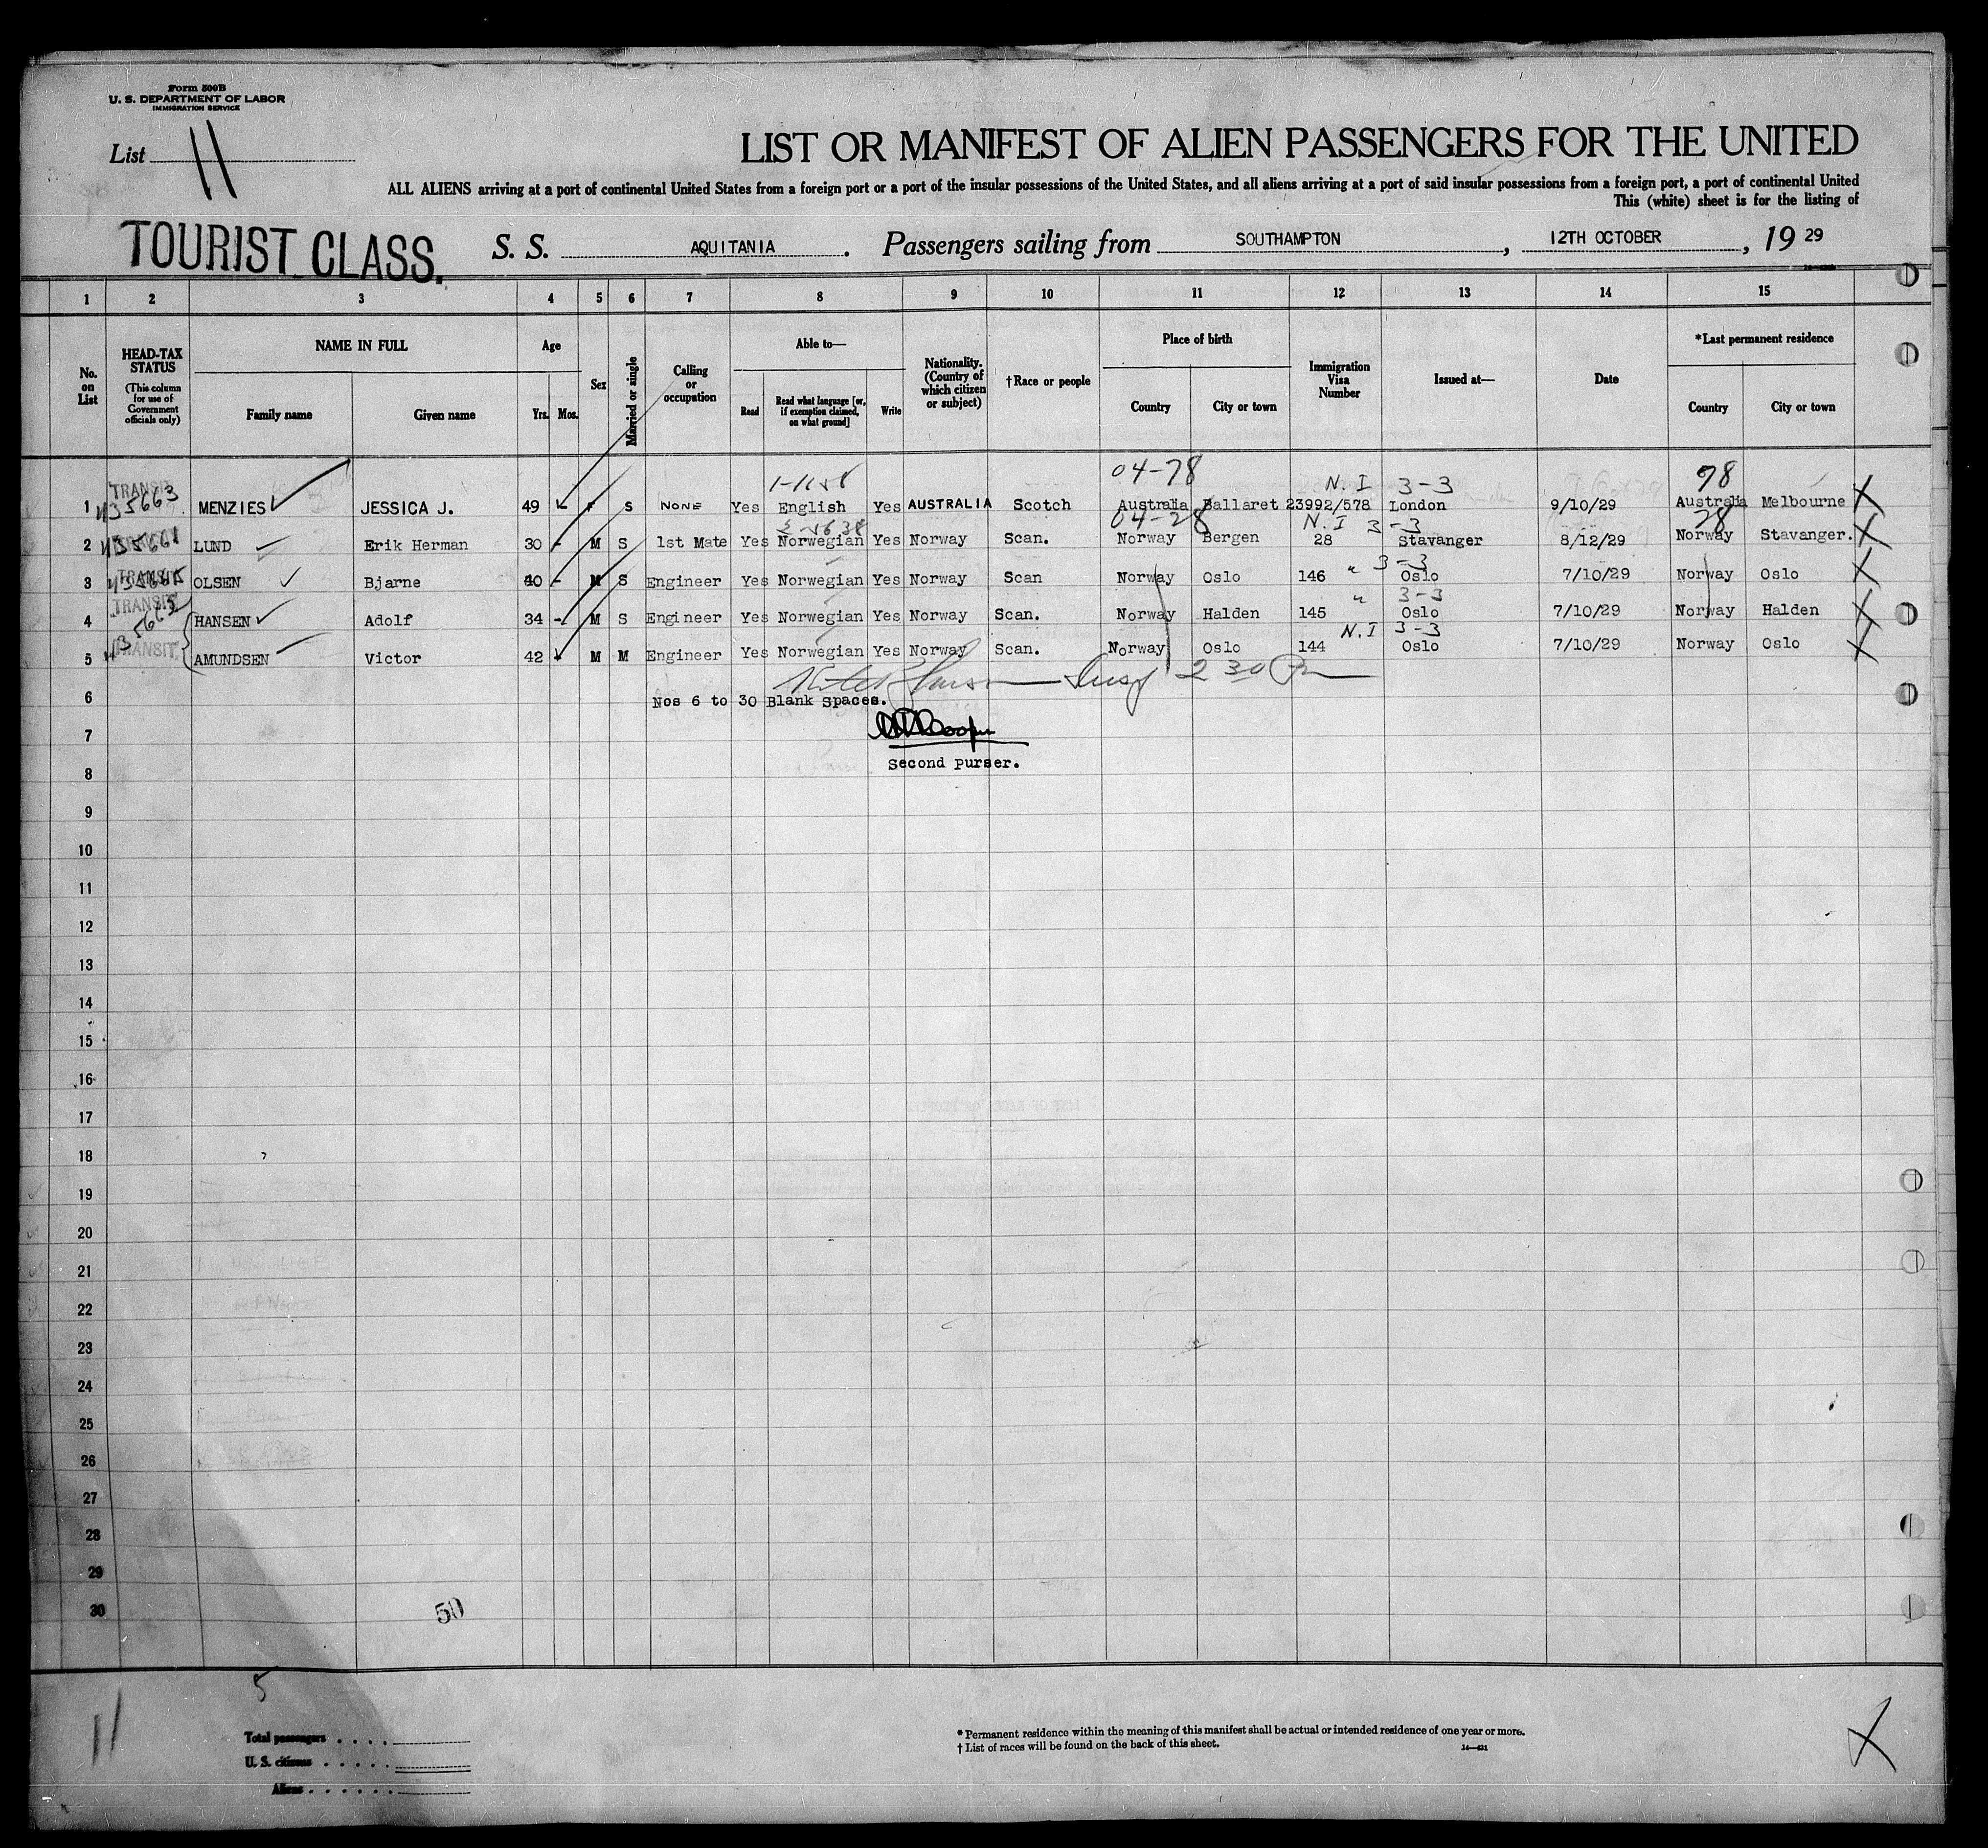 Form 500B
U. S. DEPARTMENT OF LABOR
IMMIGRATION SERVICE
List 11
LIST OR MANIFEST OF ALIEN PASSENGERS FOR THE UNITED
ALL ALIENS arriving at a port of continental United States from a foreign port or a port of the insular possessions of the United States, and all aliens arriving at a port of said insular possessions from a foreign port, a port of continental United
This (white) sheet is for the listing of
TOURIST CLASS. S. S. AQUITANIA. Passengers sailing from SOUTHAMPTON, 12TH OCTOBER, 19 29
1 2 3 4 5 6 7 8 9 10 11 12 13 14 15
No. on List
HEAD-TAX STATUS (This column for use of Government officials only)
NAME IN FULL
Family name Given name
Age
Yrs. Mos.
Sex
Married or single
Calling or occupation
Able to—
Read Read what language [or, if exemption claimed, on what ground] Write
Nationality. (Country of which citizen or subject)
†Race or people
Place of birth
Country City or town
Immigration Visa Number
Issued at—
Date
*Last permanent residence
Country City or town
04-78 N. I 3-3 98
1 TRANSIT 435663 MENZIES JESSICA J. 49 F S NONE Yes English Yes AUSTRALIA Scotch Australia Ballaret 23992/578 London 9/10/29 Australia Melbourne X
04-28 N. I 3-3 28
2 LUND Erik Herman 30 - M S 1st Mate Yes Norwegian Yes Norway Scan. Norway Bergen 28 Stavanger 8/12/29 Norway Stavanger. X
" 3-3
3 TRANSIT OLSEN Bjarne 40 - M S Engineer Yes Norwegian Yes Norway Scan Norway Oslo 146 Oslo 7/10/29 Norway Oslo X
" 3-3
4 TRANSIT HANSEN Adolf 34 - M S Engineer Yes Norwegian Yes Norway Scan. Norway Halden 145 Oslo 7/10/29 Norway Halden X
N. I 3-3
5 TRANSIT AMUNDSEN Victor 42 M M Engineer Yes Norwegian Yes Norway Scan. Norway Oslo 144 Oslo 7/10/29 Norway Oslo X
Insp 2 30 Pm
6 Nos 6 to 30 Blank Spaces.
7
Second Purser.
8
9
10
11
12
13
14
15
16
17
18
19
20
21
22
23
24
25
26
27
28
29
30
50
5
11
Total passengers
U. S. citizens
Aliens
* Permanent residence within the meaning of this manifest shall be actual or intended residence of one year or more.
† List of races will be found on the back of this sheet.
X